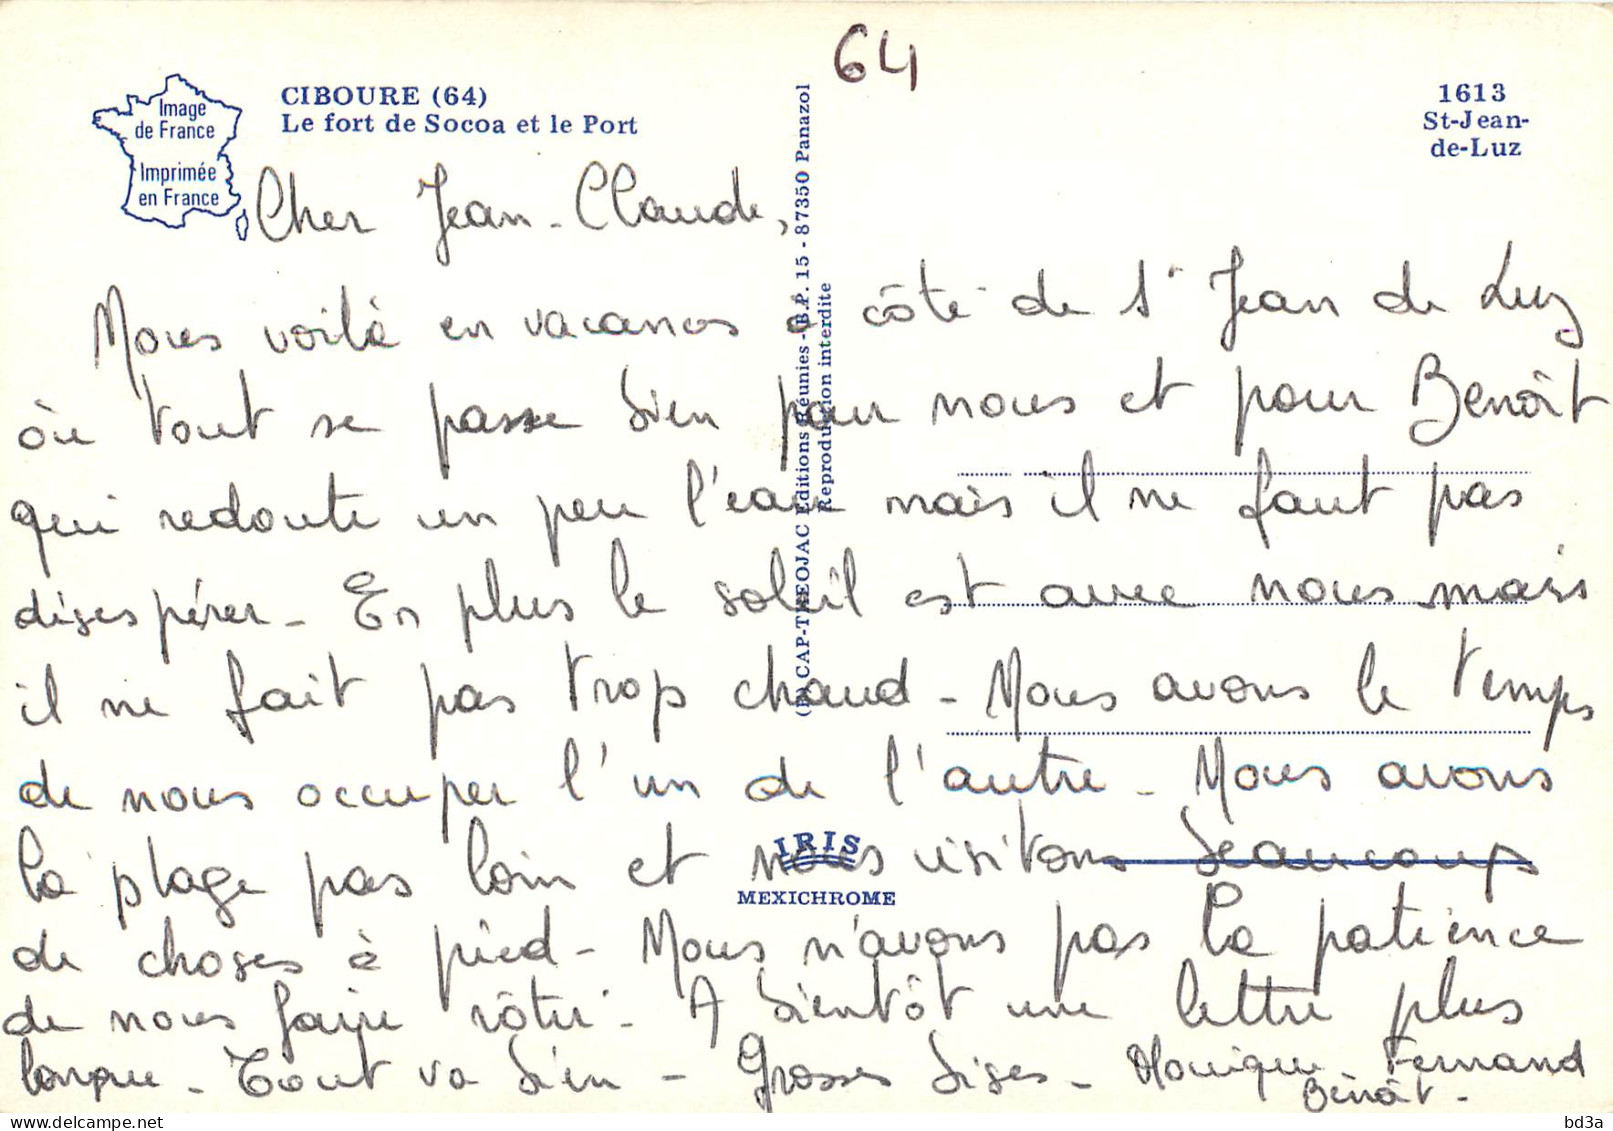 64
CIBOURE (64)
Le fort de Socoa et le Port
Image
de France
Imprimée
en France
1613
St-Jean-
de-Luz
Cher Jean-Claude,
Nous voilà en vacances à côté de St Jean de Luz
où tout se passe bien pour nous et pour Benoît
qui redoute un peu l'eau mais il ne faut pas
désespérer - En plus le soleil est avec nous mais
il ne fait pas trop chaud - Nous avons le temps
de nous occuper l'un de l'autre - Nous avons
la plage pas loin et nous visitons beaucoup
de choses à pied - Nous n'avons pas la patience
de nous faire rôtir - A bientôt une lettre plus
longue - Tout va bien - Grosses bises - Monique Fernand
Benoît -
(R) CAP-THEOJAC Editions Réunies - B.P. 15 - 87350 Panazol
Reproduction interdite
IRIS
MEXICHROME
delcampe.net
bd3a